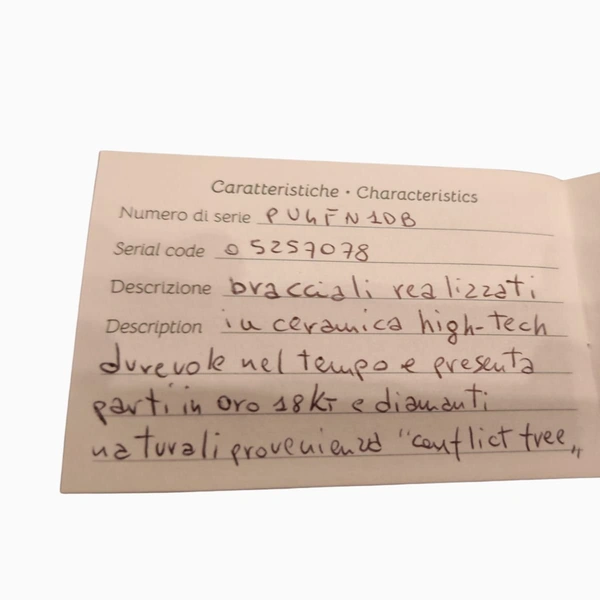 Caratteristiche • Characteristics
Numero di serie PU4FN1DB
Serial code 05257078
Descrizione bracciali realizzati
Description in ceramica high-tech
durevole nel tempo e presenta
parti in oro 18KT e diamanti
naturali provenienza "conflict free„